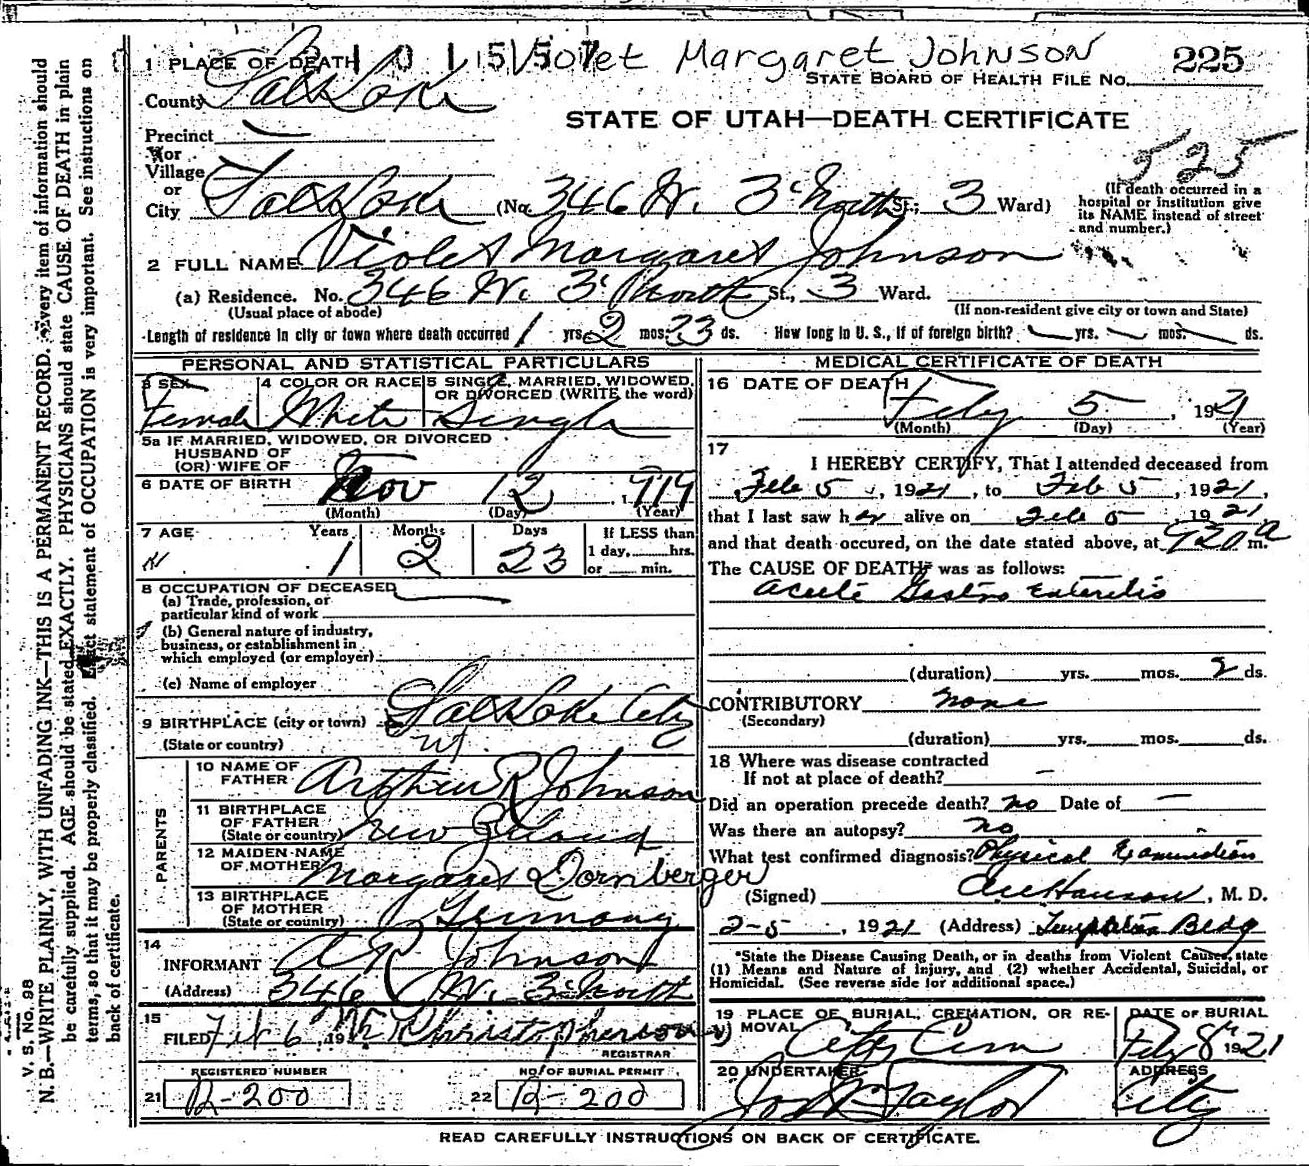 2101557 Violet Margaret Johnson 225
1 PLACE OF DEATH
STATE BOARD OF HEALTH FILE No.
County Salt Lake
STATE OF UTAH—DEATH CERTIFICATE
Precinct
or
Village
525
or
City Salt Lake (No. 346 W. 3d North St.; 3 Ward)
(If death occurred in a
hospital or institution give
its NAME instead of street
and number.)
2 FULL NAME Violet Margaret Johnson
(a) Residence. No. 346 W. 3d North St., 3 Ward.
(Usual place of abode)
(If non-resident give city or town and State)
Length of residence in city or town where death occurred 1 yrs. 2 mos. 23 ds. How long in U. S., if of foreign birth? yrs. mos. ds.
PERSONAL AND STATISTICAL PARTICULARS
3 SEX
Female
4 COLOR OR RACE
White
5 SINGLE, MARRIED, WIDOWED,
OR DIVORCED (WRITE the word)
Single
5a IF MARRIED, WIDOWED, OR DIVORCED
HUSBAND OF
(OR) WIFE OF
6 DATE OF BIRTH Nov 12, 1919
(Month) (Day) (Year)
7 AGE Years Months Days If LESS than
1 2 23 1 day, hrs.
or min.
8 OCCUPATION OF DECEASED
(a) Trade, profession, or
particular kind of work
(b) General nature of industry,
business, or establishment in
which employed (or employer)
(c) Name of employer
9 BIRTHPLACE (city or town) Salt Lake City
(State or country) Ut.
PARENTS
10 NAME OF
FATHER Arthur R Johnson
11 BIRTHPLACE
OF FATHER
(State or country) New Zealand
12 MAIDEN NAME
OF MOTHER Margaret Dornberger
13 BIRTHPLACE
OF MOTHER
(State or country) Germany
14
INFORMANT A R Johnson
(Address) 346 W. 3d North
15
FILED Feb 6, 19 Christopherson
REGISTRAR
REGISTERED NUMBER
21 R-200
NO. OF BURIAL PERMIT
22 R-200
MEDICAL CERTIFICATE OF DEATH
16 DATE OF DEATH
Feby 5, 1921
(Month) (Day) (Year)
17
I HEREBY CERTIFY, That I attended deceased from
Feb 5, 1921, to Feb 5, 1921,
that I last saw her alive on Feb 5 1921
and that death occured, on the date stated above, at 920 a m.
The CAUSE OF DEATH* was as follows:
Acute Gastro Enteritis
(duration) yrs. mos. 2 ds.
CONTRIBUTORY none
(Secondary)
(duration) yrs. mos. ds.
18 Where was disease contracted
If not at place of death? —
Did an operation precede death? no Date of —
Was there an autopsy? no
What test confirmed diagnosis? Physical Examination
(Signed) Hanson, M. D.
2-5, 1921 (Address) Templeton Bldg
*State the Disease Causing Death, or in deaths from Violent Causes, state
(1) Means and Nature of Injury, and (2) whether Accidental, Suicidal, or
Homicidal. (See reverse side for additional space.)
19 PLACE OF BURIAL, CREMATION, OR RE-
MOVAL City Cem
DATE OF BURIAL
Feby 8th 1921
20 UNDERTAKER
Jos Taylor
ADDRESS
City
READ CAREFULLY INSTRUCTIONS ON BACK OF CERTIFICATE.
V. S. No. 98
N. B.—WRITE PLAINLY, WITH UNFADING INK—THIS IS A PERMANENT RECORD. Every item of information should
be carefully supplied. AGE should be stated EXACTLY. PHYSICIANS should state CAUSE OF DEATH in plain
terms, so that it may be properly classified. Exact statement of OCCUPATION is very important. See instructions on
back of certificate.